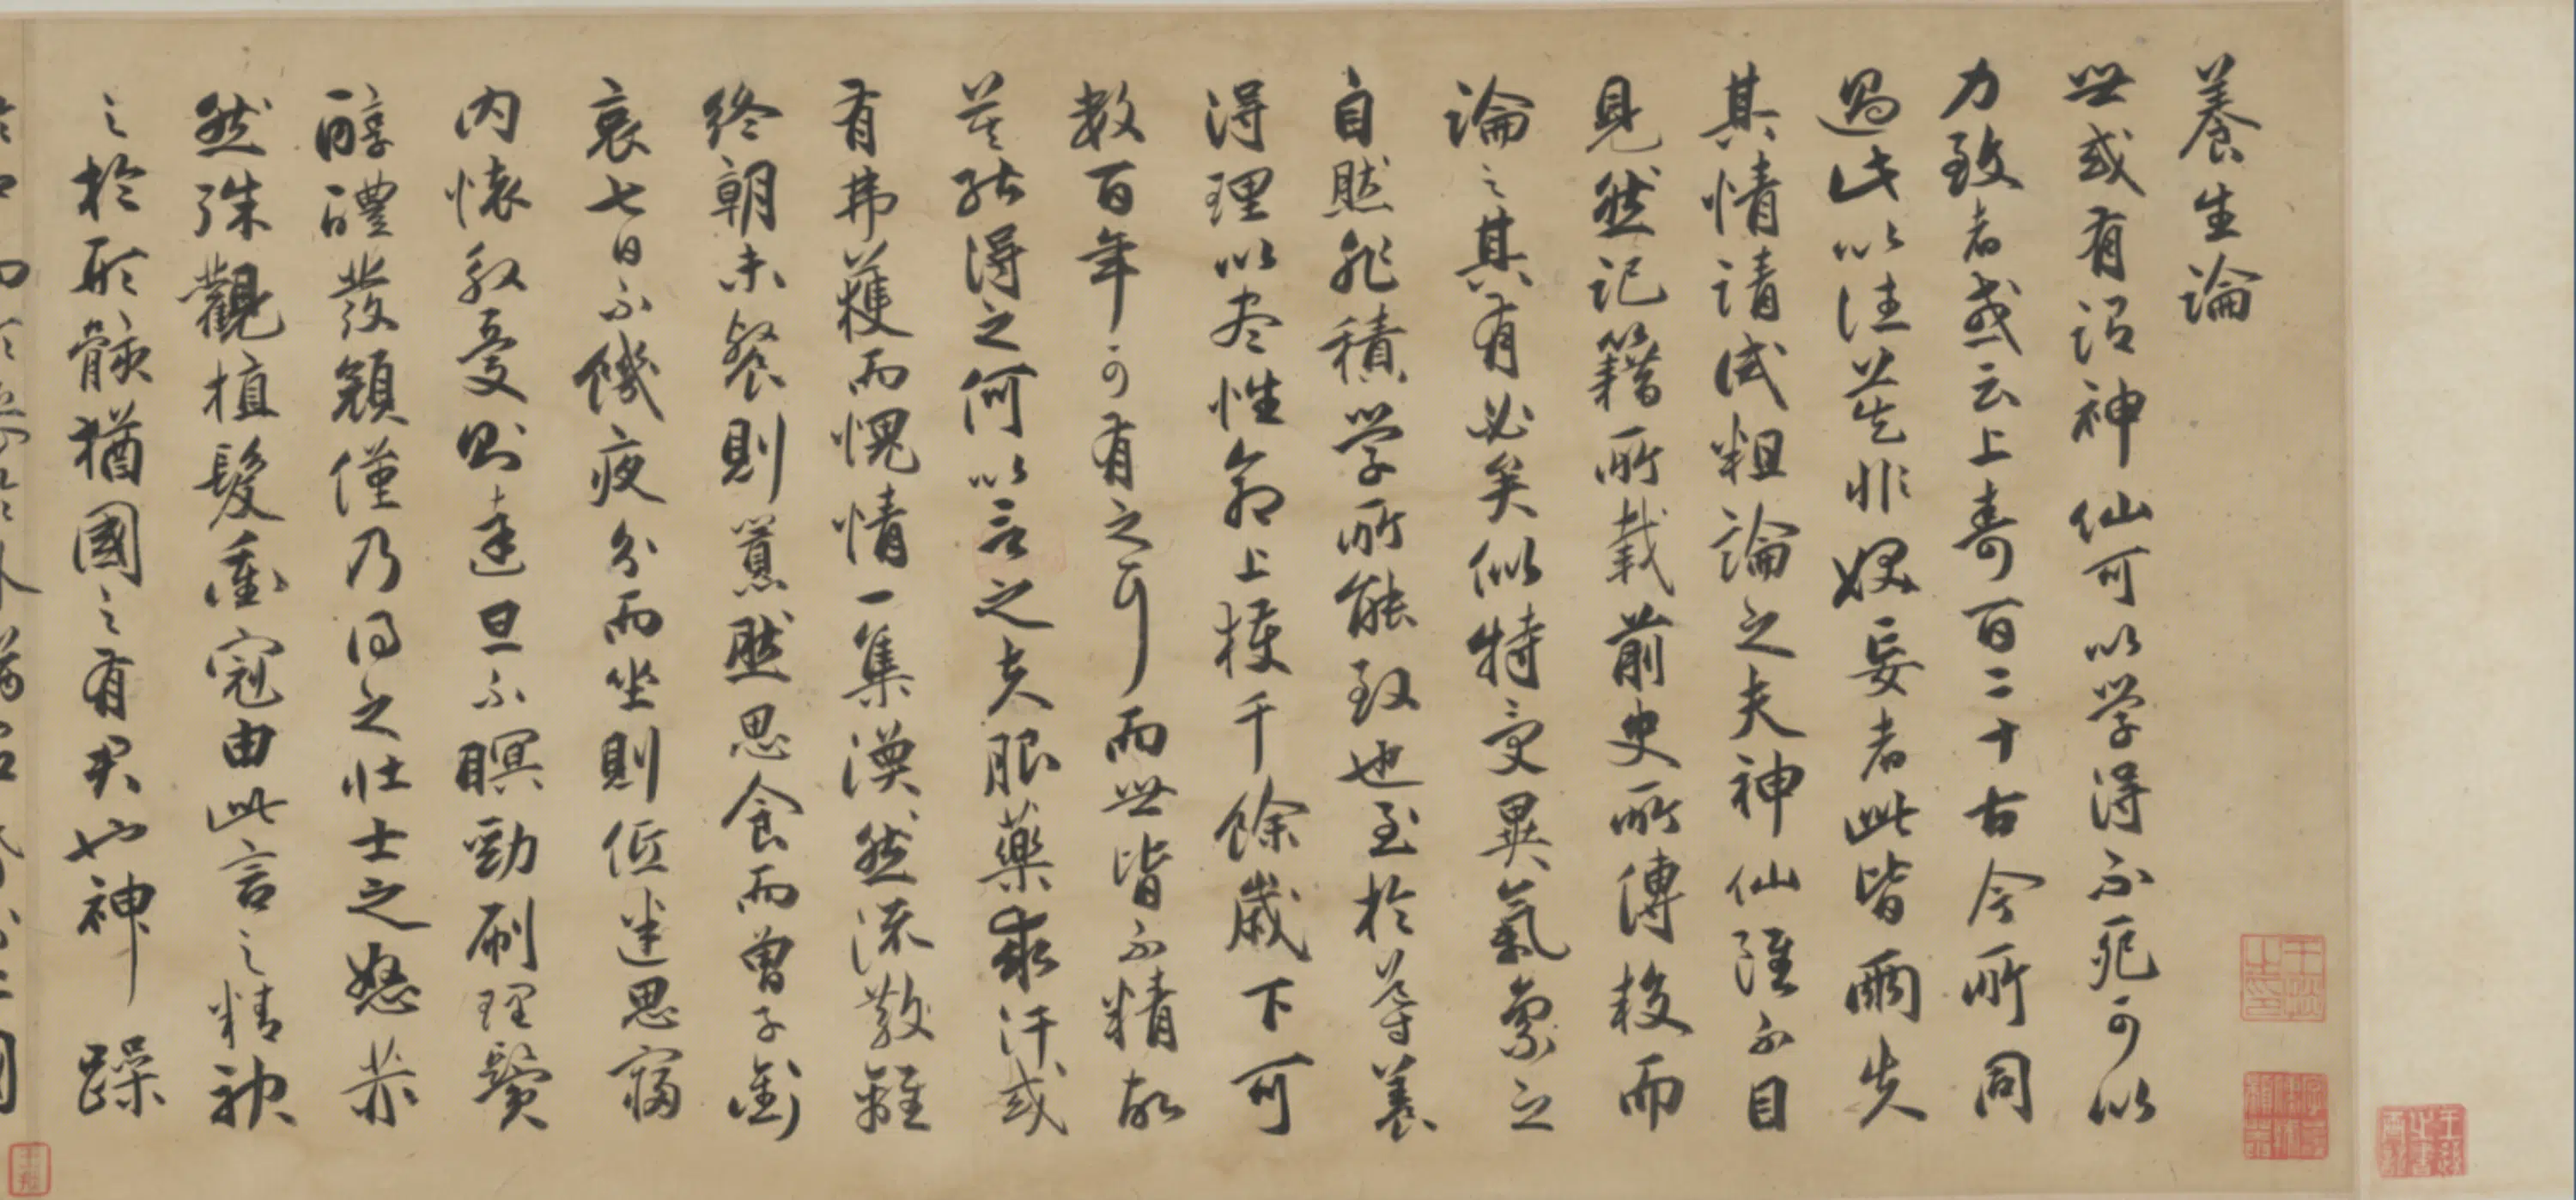 養生論
世或有謂神仙可以學得不死可以
力致者或云上壽百二十古今所同
過此以往莫非妖妄者此皆兩失
其情請試粗論之夫神仙雖不目
見然記籍所載前史所傳較而
論之其有必矣似特受異氣稟之
自然非積學所能致也至於導養
得理以盡性命上獲千餘歲下可
數百年可有之耳而世皆不精故
莫能得之何以言之夫服藥求汗或
有弗獲而愧情一集渙然流散雖
終朝未餐則囂然思食而曾子銜
哀七日不饑夜分而坐則低迷思寢
內懷殷憂則達旦不瞑勁刷理鬢
醇醴發顏僅乃得之壯士之怒赤
然殊觀植髮衝冠由此言之精神
之於形骸猶國之有君也神躁